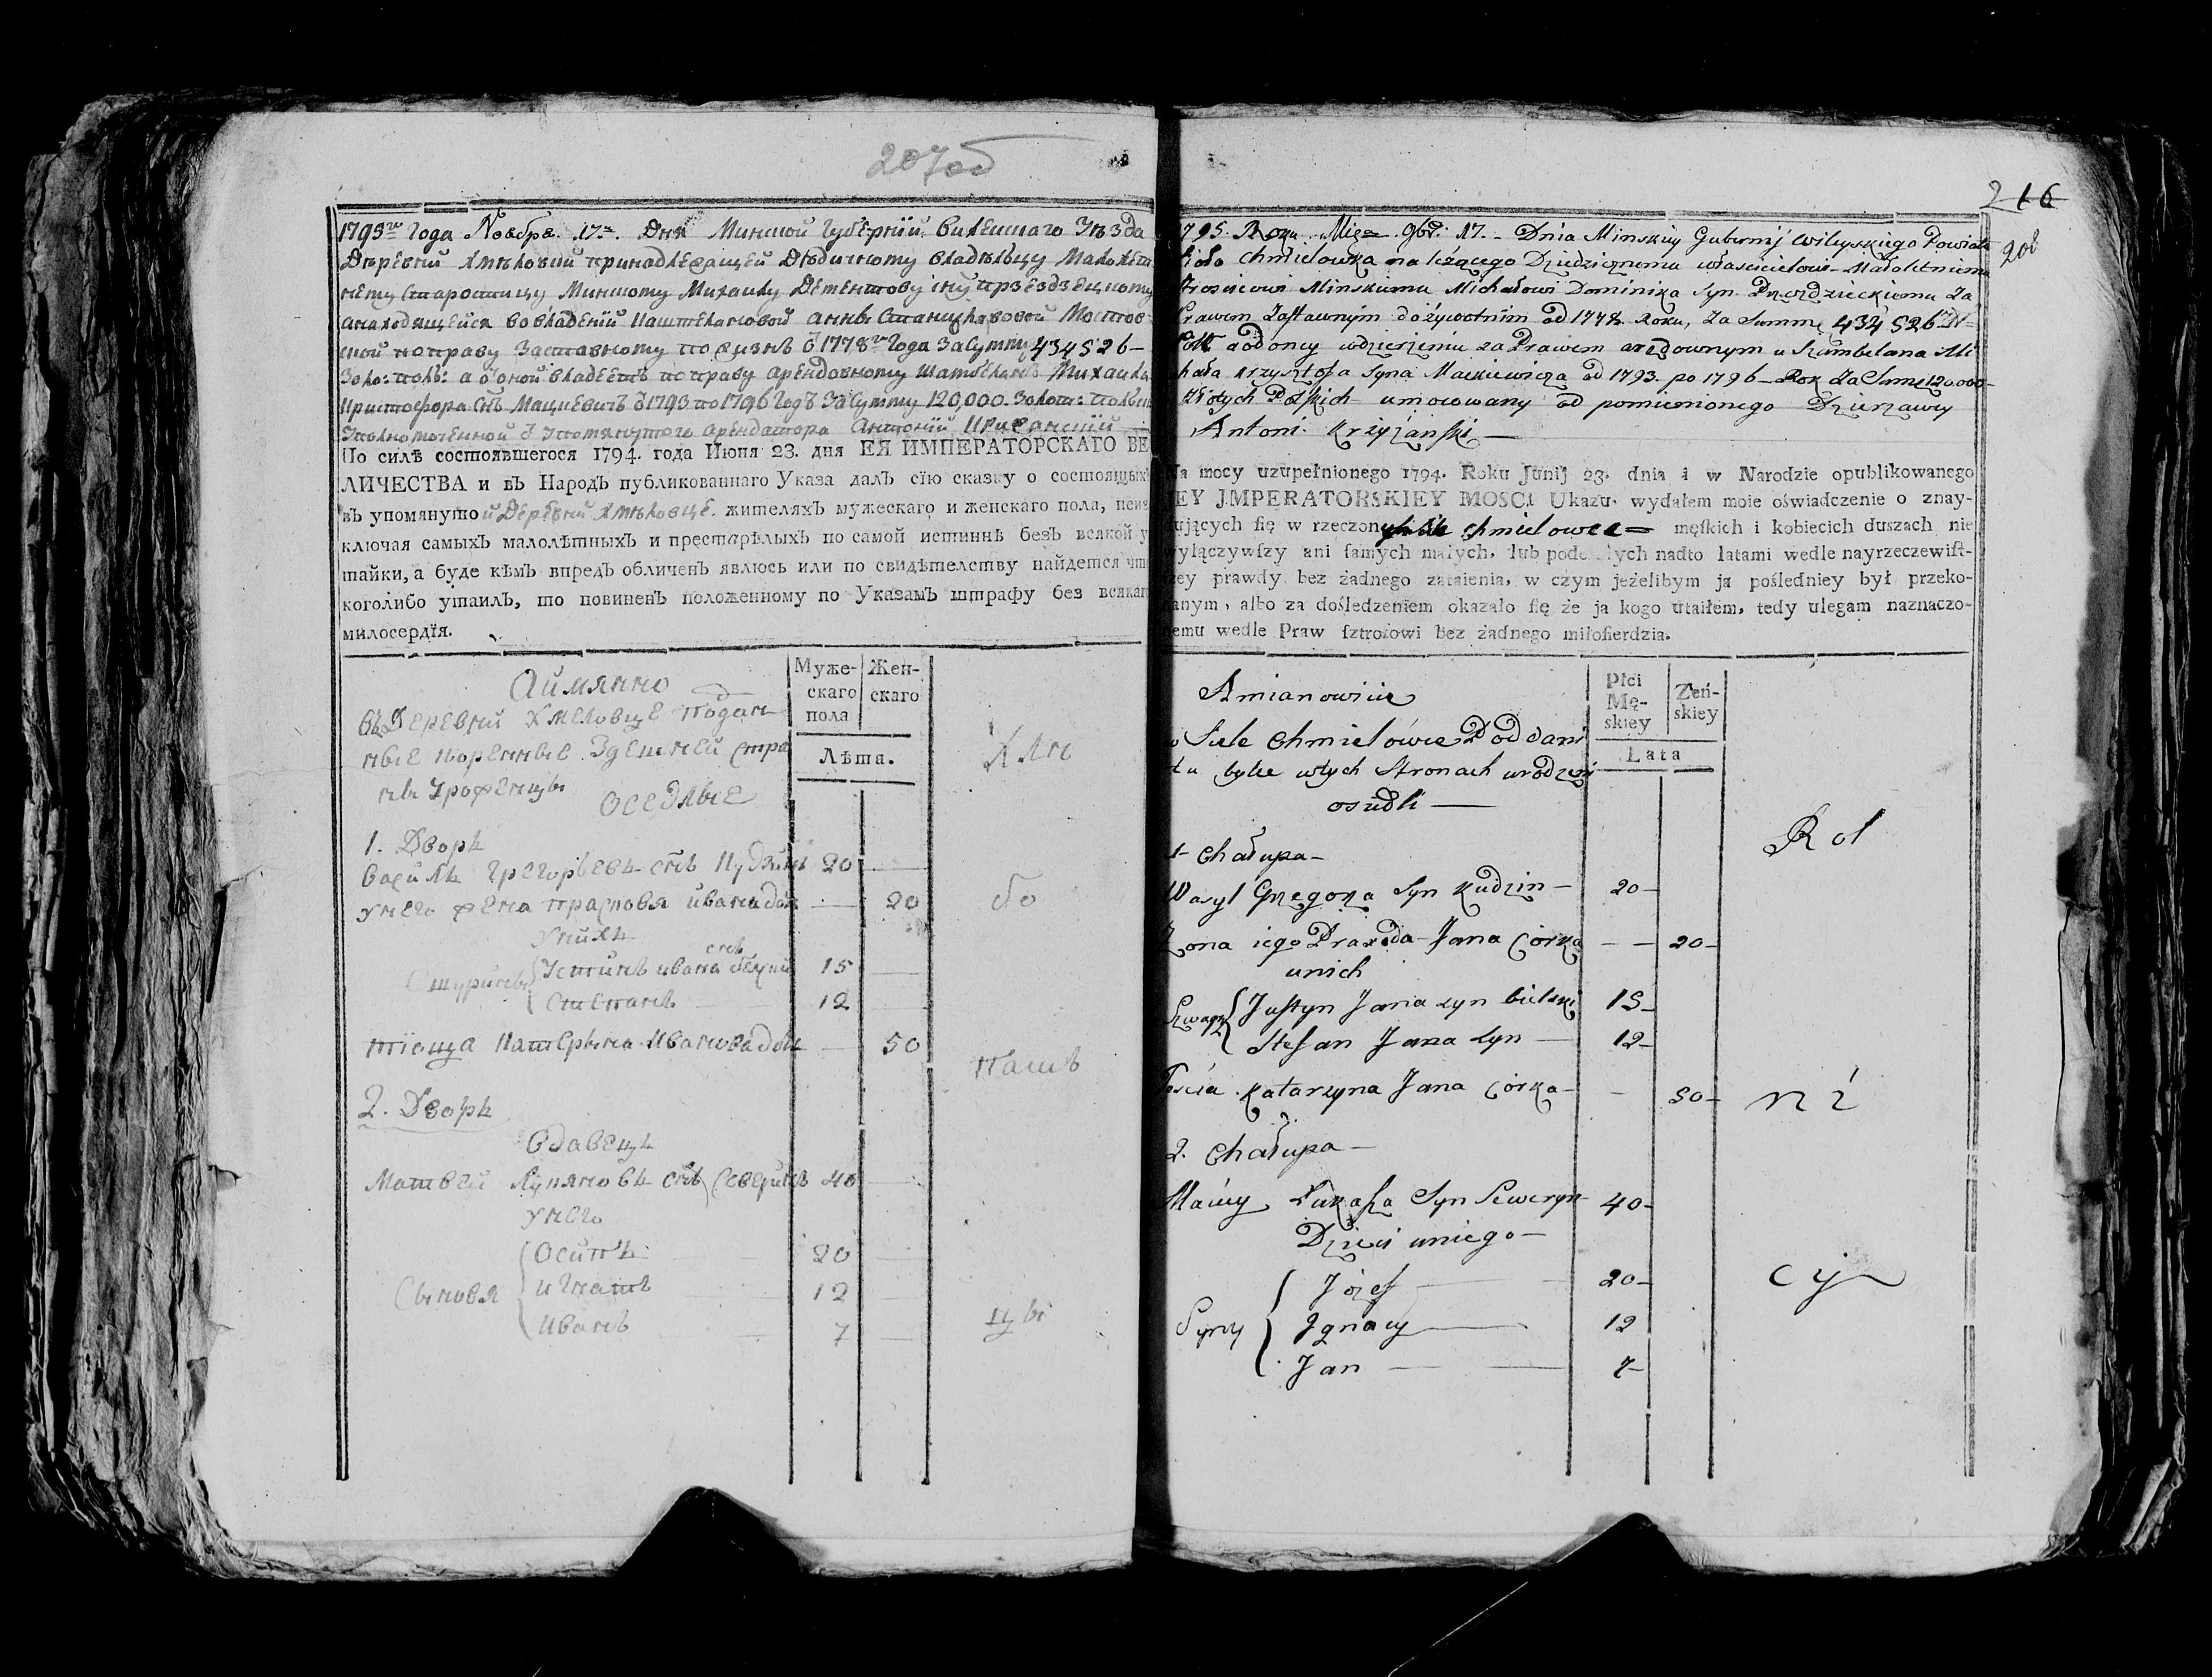 207 об
1795го Года Ноября 17го Дня Минской Губернїи Вилейскаго Уѣзда
Деревни Хмѣловки принадлежащей Дѣдичному владѣльцу Малолѣт
нему Старостицу Минскому Михаилу
анаходящейся во владѣнїи Каштеляновой Анны Станиславовой Мостов
ской поправу заставному по жизнь с 1778го Года За Сумму 434526 —
Золо: поль: а с оной владѣетъ поправу арендовному Шамбелянъ Михаила
Христофора Снъ Мацкевичъ с 1793 по 1796 Годъ За Сумму 120,000 Золот: польск
Уполномоченной с упомянутого арендатора Антонїй Крижанскїй
По силѣ состоявшегося 1794. года Июня 23. дня ЕЯ ИМПЕРАТОРСКАГО ВЕ
ЛИЧЕСТВА и въ Народъ публикованнаго Указа далъ сїю сказку о состоящихъ
въ упомянутой Деревни Хмѣловце жителяхъ мужескаго и женскаго пола, неиз
ключая самыхъ малолѣтныхъ и престарѣлыхъ по самой истиннѣ безъ всякой у
тайки, а буде кѣмъ впредъ обличенъ явлюсь или по свидѣтелству найдется что
коголибо утаилъ, то повиненъ положенному по Указамъ штрафу без всякаг
милосердїя.
Муже-
скаго
пола
Жен-
скаго
Лѣта.
Аимянно
въ Деревни Хмеловце Подан
ные коренные Здешней стра
ны Уроженцы
оседлые
Хлѣ
1. Дворъ
Василь Грегорьевъ снъ Кудзинъ 20 —
у него жена Прасковя Ивана доч — 20
бо
у нихъ
Шурины { Устинъ Ивана снъ Белский 15 —
Степанъ — 12 —
тїоща Катерына Иванова доч — 50
пашъ
2. Дворъ
Вдавецъ
Матвей Лукяновъ снъ Северинъ 40 —
у него
Сыновя { Осипъ 20 —
Игнатъ 12 —
Иванъ 7 —
цы
216
208
1795 Roku Mięca 9br: 17. Dnia Minskiey Gubernij Wileyskiego Powiatu
Sioło Chmielowka należącego Dziedzicznemu włascicielowi Małoletniemu
Stościcowi Minskiemu Michałowi Dominika Syn. Przezdzieckiemu Za
Prawem Zastawnym dożywotnim od 1778 Roku, Za Summę 434526 Zł
Pols adodoney wdzierżeniu za Prawem arędownym u Szambelana Mi
chała Krzysztofa Syna Mackiewicza od 1793. po 1796 Rok Za Sumę 120000
Złotych Polskich umocowany od pomienionego Dzierżawcy
Antoni Krzyżanski —
Na mocy uzupełnionego 1794. Roku Junij 23. dnia i w Narodzie opublikowanego
JEY JMPERATORSKIEY MOSCI Ukazu. wydałem moie oświadczenie o znay-
duiących się w rzeczon Chmielowce męskich i kobiecich duszach nie
wyłączywszy ani samych małych, lub pode ych nadto latami wedle nayrzeczewist-
szey prawdy bez żadnego zataienia, w czym jeżelibym ja pośledniey był przeko-
nanym, albo za dośledzeniem okazało się że ja kogo utaiłem, tedy ulegam naznaczo-
nemu wedle Praw sztrofowi bez żadnego miłosierdzia.
Płci
Mę-
skiey
Zeń-
skiey
Lata
A mianowicie
w Siele Chmielówce Poddani
tu byłe wtych Stronach urodzeni
osiedli —
Rol
1. Chałupa —
Wasyl Grzegorza Syn Kudzin — 20 —
Zona iego Praxeda Jana Córka — — 20 —
unich
Szwagry { Justyn Jana syn bielski 15 —
Stefan Jana syn — 12 —
Teścia Katarzyna Jana Córka — — 50 —
ni
2. Chałupa —
Maciey Łukasza Syn Seweryn — 40 —
Dzieci uniego —
Syny { Józef — 20 —
Ignacy — 12
Jan — 7 —
cy